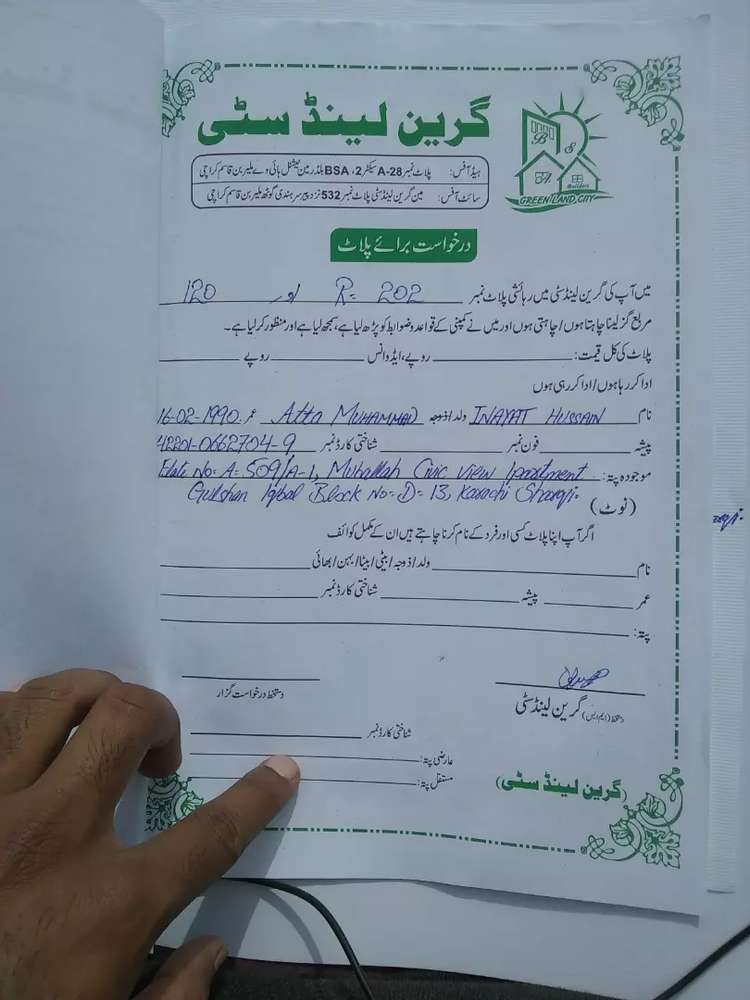 گرین لینڈ سٹی
B S
BA
Builders
GREEN LAND CITY
ہیڈ آفس: پلاٹ نمبر A-28 سیکٹر 2، BSA بلڈر مین نیشنل ہائی وے ملیر بن قاسم کراچی
سائٹ آفس: مین گرین لینڈ سٹی پلاٹ نمبر 532 نزد پیر سرہندی گوٹھ ملیر بن قاسم کراچی
درخواست برائے پلاٹ
میں آپ کی گرین لینڈ سٹی میں رہائشی پلاٹ نمبر R= 202 اور 120
مربع گز لینا چاہتا ہوں / چاہتی ہوں اور میں نے کمپنی کے قواعد و ضوابط کو پڑھ لیا ہے، سمجھ لیا ہے اور منظور کر لیا ہے۔
پلاٹ کی کل قیمت: روپے، ایڈوانس روپے
ادا کر رہا ہوں / ادا کر رہی ہوں
نام INAYAT HUSSAIN ولد / زوجہ Atta MUHAMMAD عمر 16-02-1990
پیشہ فون نمبر شناختی کارڈ نمبر 42201-0662704-9
موجودہ پتہ: No: A-509/A-1, Muhallah Civic View
Gulshan Iqbal Block No=D=13, Karachi Sharqi.
(نوٹ)
اگر آپ اپنا پلاٹ کسی اور فرد کے نام کرنا چاہتے ہیں ان کے مکمل کوائف
نام ولد / زوجہ / بیٹی / بیٹا / بہن / بھائی
عمر پیشہ شناختی کارڈ نمبر
پتہ:
دستخط درخواست گزار
دستخط (ایم ایس) گرین لینڈ سٹی
شناختی کارڈ نمبر
عارضی پتہ:
مستقل پتہ:
(گرین لینڈ سٹی)